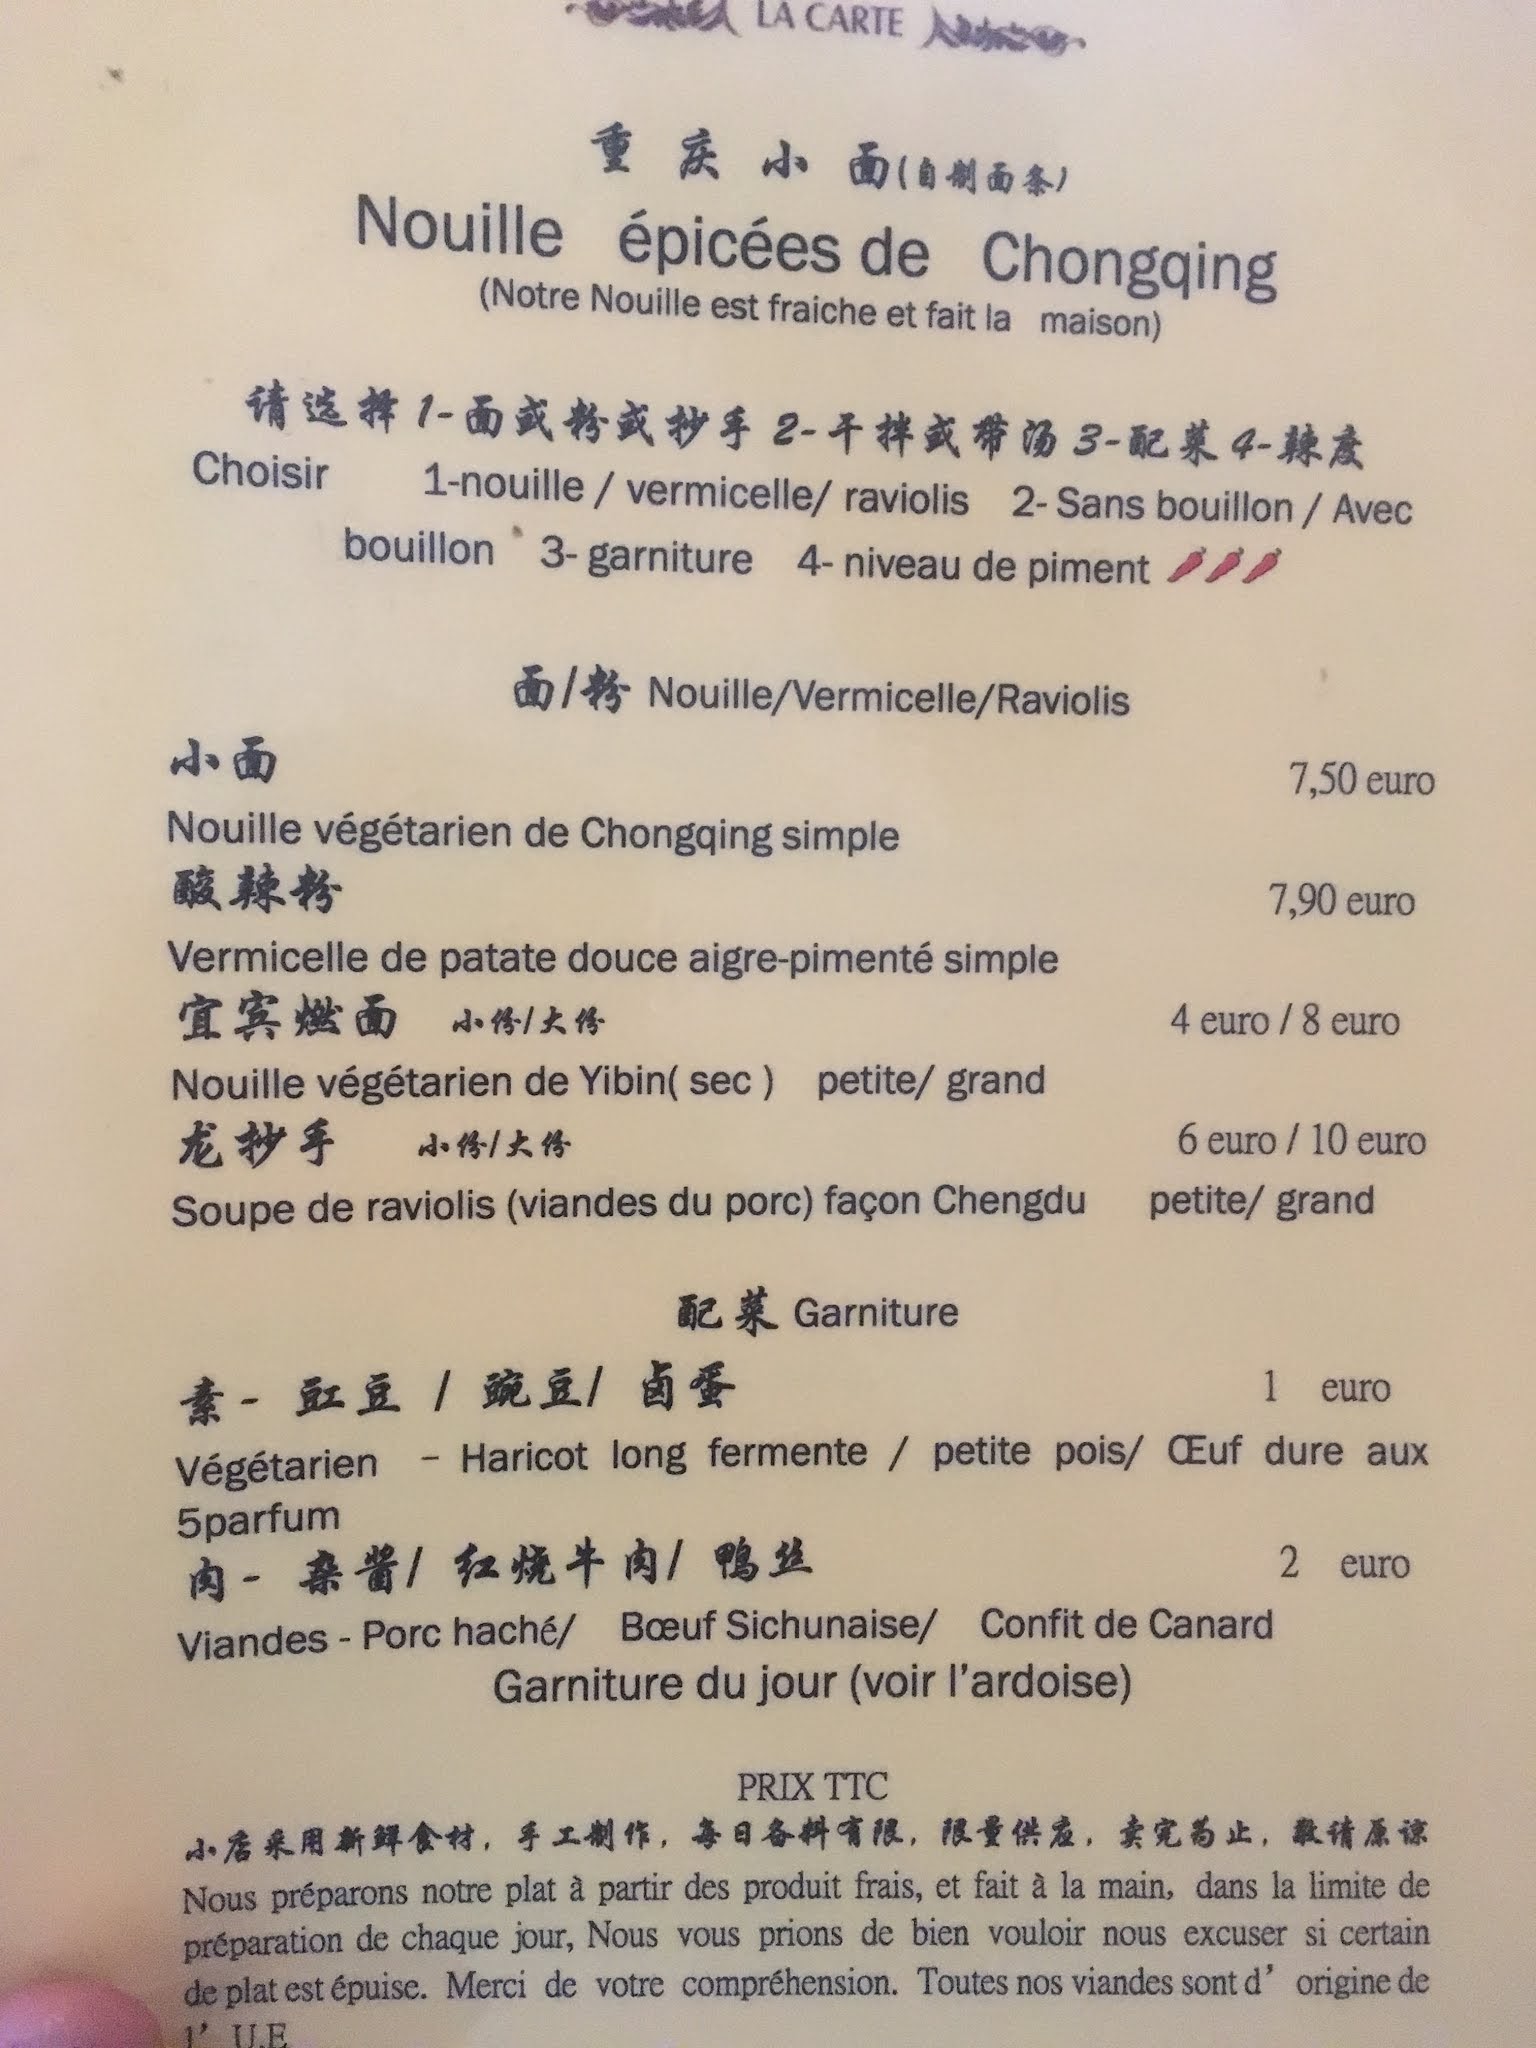 LA CARTE
重庆小面(自制面条)
Nouille épicées de Chongqing
(Notre Nouille est fraiche et fait la maison)
请选择 1-面或粉或抄手 2-干拌或带汤 3-配菜 4-辣度
Choisir 1-nouille / vermicelle/ raviolis 2- Sans bouillon / Avec
bouillon 3- garniture 4- niveau de piment 🌶🌶🌶
面/粉 Nouille/Vermicelle/Raviolis
小面 7,50 euro
Nouille végétarien de Chongqing simple
酸辣粉 7,90 euro
Vermicelle de patate douce aigre-pimenté simple
宜宾燃面 小份/大份 4 euro / 8 euro
Nouille végétarien de Yibin( sec ) petite/ grand
龙抄手 小份/大份 6 euro / 10 euro
Soupe de raviolis (viandes du porc) façon Chengdu petite/ grand
配菜 Garniture
素- 豇豆 / 豌豆/ 卤蛋 1 euro
Végétarien – Haricot long fermente / petite pois/ Œuf dure aux
5parfum
肉- 杂酱/ 红烧牛肉/ 鸭丝 2 euro
Viandes - Porc haché/ Bœuf Sichunaise/ Confit de Canard
Garniture du jour (voir l’ardoise)
PRIX TTC
小店采用新鲜食材，手工制作，每日备料有限，限量供应，卖完为止，敬请原谅
Nous préparons notre plat à partir des produit frais, et fait à la main, dans la limite de
préparation de chaque jour, Nous vous prions de bien vouloir nous excuser si certain
de plat est épuise. Merci de votre compréhension. Toutes nos viandes sont d’ origine de
l’ U.E